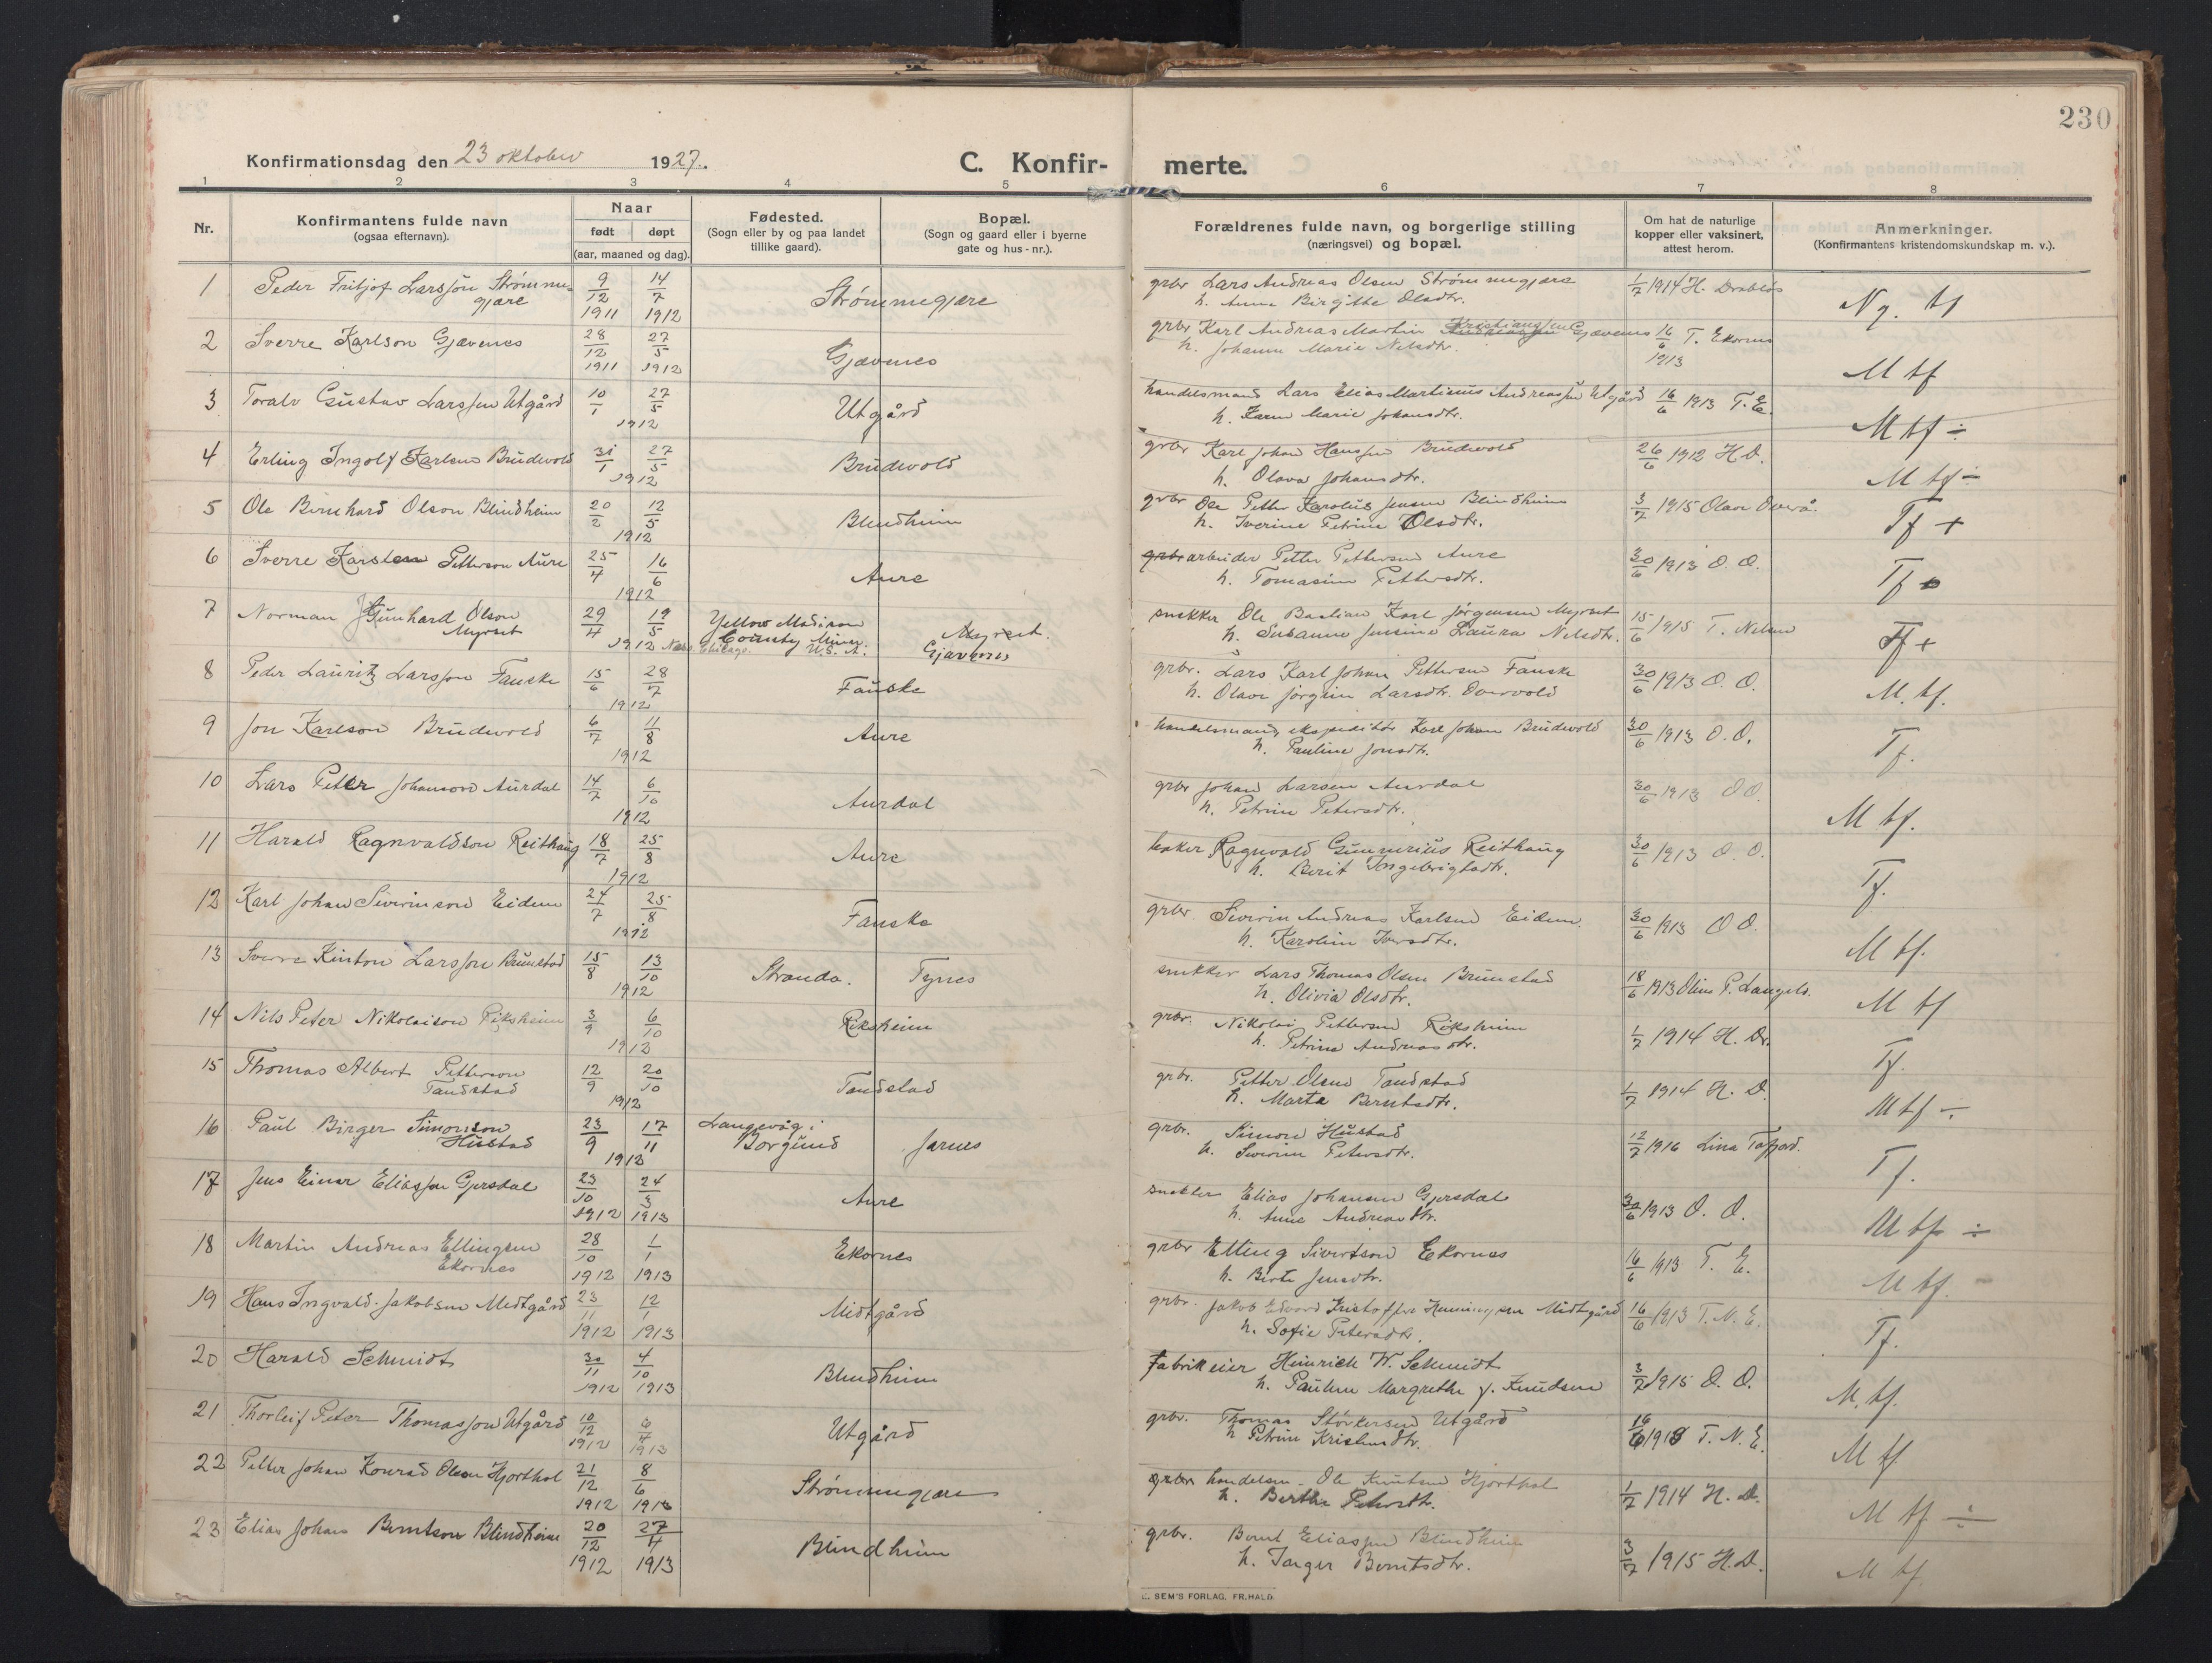 230
Konfirmationsdag den 23 oktober 1927.
C. Konfir- merte.
1 2 3 4 5 6 7 8
Nr.
Konfirmantens fulde navn
(ogsaa efternavn).
Naar
født døpt
(aar, maaned og dag).
Fødested.
(Sogn eller by og paa landet
tillike gaard).
Bopæl.
(Sogn og gaard eller i byerne
gate og hus - nr.).
Forældrenes fulde navn, og borgerlige stilling
(næringsvei) og bopæl.
Om hat de naturlige
kopper eller vaksinert,
attest herom.
Anmerkninger.
(Konfirmantens kristendomskundskap m. v.).
1 Peder Fritjof Larsson Strømme- 9/12 14/7 Strømmegjære grbr Lars Andreas Olsen Strømmegjære 1/7 1914 H. Drabløs Ng. tf
gjære 1911 1912 h. Anne Birgitte Olsdtr.
2 Sverre Karlson Gjævenes 28/12 27/5 Gjævenes grbr Karl Andreas Martin Kristiansen Gjævenes 16/6 T. Ekornes M tf
1911 1912 h. Johanne Marie Nilsdtr. 1913
3 Toralv Gustav Larssen Utgård 10/1 27/5 Utgård handelsmand Lars Elias Martinus Andreassen Utgård 16/6 1913 T. E. M tf ÷
1912 h. Karen Marie Johansdtr.
4 Erling Ingolf Karlsen Brudevold 31/1 27/5 Brudevold grbr Karl Johan Hanssen Brudevold 26/6 1912 H D. M tf ÷
1912 h. Olava Johansdtr.
5 Ole Bernhard Olson Blindheim 20/2 12/5 Blindheim grbr Ole Petter Karolus Jensen Blindheim 3/7 1915 Olave Overå. Tf +
1912 h. Iverine Petrine Olsdtr.
6 Sverre Karsten Petterson Aure 25/4 16/6 Aure grbr arbeider Petter Pettersen Aure 30/6 1913 O. O. Tf
1912 h. Tomasine Pettersdtr.
7 Norman Gunhard Olson 29/4 19/5 Yellow Madison Myrset. snekker Ole Bastian Karl Jørgensen Myrset 15/6 1915 T. Nilsen Tf +
Myrset 1912 County Minn. U.S.A. Gjævenes h. Susanne Jensine Laura Nilsdtr.
Chicago.
8 Peder Lauritz Larsson Fauske 15/6 28/7 Fauske grbr. Lars Karl Johan Pettersen Fauske 30/6 1913 O. O. M. tf.
1912 h. Olave Jørgine Larsdtr. Overvold
9 Jon Karlson Brudevold 6/7 11/8 Aure handelsmand, ekspeditør Karl Johan Brudevold 30/6 1913 O. O. Tf.
1912 h. Pauline Jonsdtr.
10 Lars Peter Johanson Aurdal 14/7 6/10 Aurdal grbr Johan Larsen Aurdal 30/6 1913 O O. M tf.
1912 h. Petrine Petersdtr.
11 Harald Ragnvaldson Reithaug 18/7 25/8 Aure baker Ragnvald Gunnerius Reithaug 30/6 1913 O. O. Tf.
1912 h. Berit Ingebrigtsdtr.
12 Karl Johan Siverinson Eidem 24/7 25/8 Fauske grbr. Siverin Andreas Karlsen Eidem 30/6 1913 O O. M tf.
1912 h. Karoline Iversdtr.
13 Sverre Kinton Larsson Brunstad 15/8 13/10 Stranda. Tynes snekker Lars Thomas Olsen Brunstad 18/6 1913 Olius P. Langelo. M tf
1912 h. Olivia Olsdtr.
14 Nils Peter Nikolaison Riksheim 3/9 6/10 Riksheim grbr. Nikolai Pettersen Riksheim 1/7 1914 H. Dr. Tf.
1912 h. Petrine Andreasdtr.
15 Thomas Albert Petterson 12/9 20/10 Tandstad grbr. Petter Olsen Tandstad 1/7 1914 H. D. M tf ÷
Tandstad 1912 h. Marta Berntsdtr.
16 Paul Birger Simonson 23/9 17/11 Langevåg i Jarnes grbr. Simon Hustad 12/7 1916 Lina Tafjord. Tf.
Hustad 1912 Borgund h. Siverine Petersdtr.
17 Jens Einar Eliassen Gjersdal 23/10 24/3 Aure snekker Elias Johansen Gjersdal 30/6 1913 O. O. M tf ÷
1912 1913 h. Anne Andreasdtr.
18 Martin Andreas Ellingsen 28/10 1/1 Ekornes grbr Elling Sivertson Ekornes 16/6 1913 T. E. M tf.
Ekornes 1912 1913 h. Berte Jensdtr.
19 Hans Ingvald Jakobsen Midtgård 23/11 12/1 Midtgård grbr. Jakob Edvard Kristoffer Henningsen Midtgård 16/6 1913 T. N. E. Tf.
1912 1913 h. Sofie Petersdtr.
20 Harald Schmidt 30/11 4/10 Blindheim fabrikeier Heinrich W. Schmidt 3/7 1915 O. O. M. tf.
1912 1913 h. Pauline Margrethe f. Knudsen
21 Thorleif Peter Thomasson Utgård 10/12 6/4 Utgård grbr. Thomas Størkersen Utgård 16/6 1913 T. N. E. M tf
1912 1913 h Petrine Kristensdtr.
22 Petter Johan Konrad Olsen Hjorthol 21/12 8/6 Strømmegjære grbr handelsm. Ole Knutsen Hjorthol 1/7 1914 H. D. M tf ÷
1912 1913 h. Berthe Petersdtr.
23 Elias Johan Berntson Blindheim 20/12 27/4 Blindheim grbr. Bernt Eliassen Blindheim 3/7 1915 H. D. M tf
1912 1913 h. Inger Berntsdtr.
SEM'S FORLAG, FR.HALD